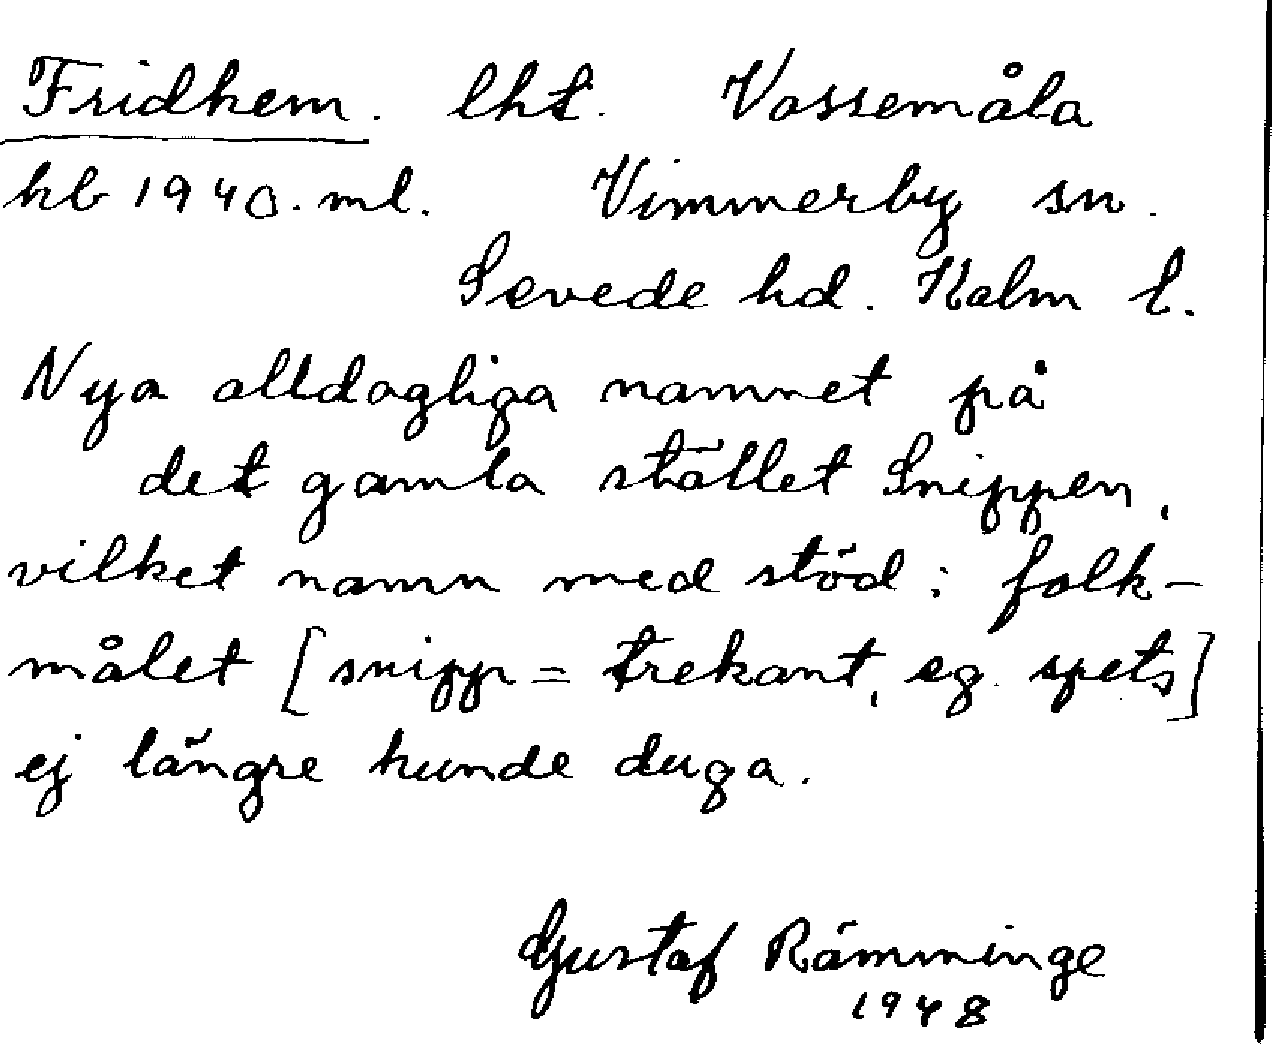 Fridhem. lht. Vassemåla
kb 1940. ml. Vimmerby sn.
Sevede hd. Kalm l.
Nya alldagliga namnet på
det gamla stället Snippen,
vilket namn med stöd i folk-
målet [snipp = trekant, eg. spets]
ej längre kunde duga.
Gustaf Rämminge
1948